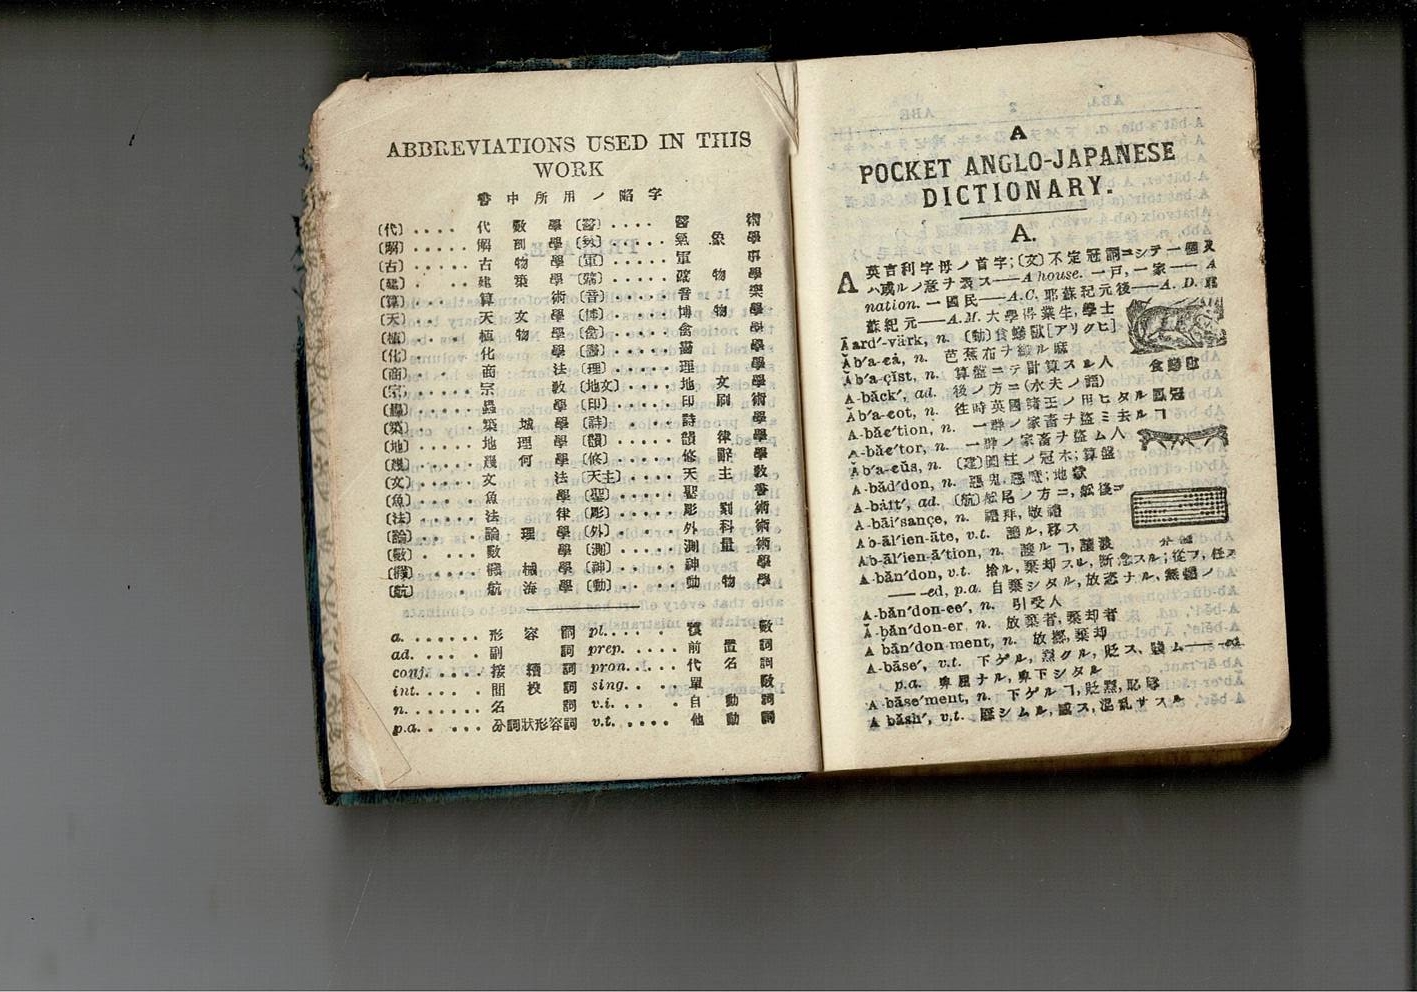 ABBREVIATIONS USED IN THIS
WORK
書中所用ノ畧字
〔代〕.... 代數學 〔醫〕.... 醫術
〔解〕.... 解剖學 〔氣〕.... 氣象學
〔古〕.... 古物學 〔軍〕.... 軍事
〔建〕.... 建築學 〔礦〕.... 礦物學
〔算〕.... 算術 〔音〕.... 音樂
〔天〕.... 天文學 〔博〕.... 博物學
〔植〕.... 植物學 〔禽〕.... 禽學
〔化〕.... 化學 〔畵〕.... 畵學
〔商〕.... 商法 〔理〕.... 理學
〔宗〕.... 宗敎 〔地文〕.... 地文學
〔蟲〕.... 蟲學 〔印〕.... 印刷術
〔築〕.... 築城學 〔詩〕.... 詩學
〔地〕.... 地理學 〔韻〕.... 韻律學
〔幾〕.... 幾何學 〔修〕.... 修辭學
〔文〕.... 文法 〔天主〕.... 天主敎
〔魚〕.... 魚學 〔聖〕.... 聖書
〔法〕.... 法律 〔彫〕.... 彫刻術
〔論〕.... 論理學 〔外〕.... 外科術
〔數〕.... 數學 〔測〕.... 測量術
〔機〕.... 機械學 〔神〕.... 神學
〔航〕.... 航海學 〔動〕.... 動物學
a. ...... 形容詞 pl. ..... 複數
ad. ...... 副詞 prep. .... 前置詞
conj. ..... 接續詞 pron. .... 代名詞
int. ...... 間投詞 sing. ... 單數
n. ....... 名詞 v.i. .... 自動詞
p.a. ..... 分詞狀形容詞 v.t. ..... 他動詞
A
POCKET ANGLO-JAPANESE
DICTIONARY.
A.
A 英吉利字母ノ首字;〔文〕不定冠詞ニシテ一個又
ハ或ルノ意ヲ表ス——A house. 一戸,一家—— A
nation. 一國民——A.C. 耶蘇紀元後——A. D. 耶
蘇紀元——A.M. 大學得業生,學士
Äard′-värk, n. 〔動〕食蟻獸[アリクヒ]
Ăb′a-cá, n. 芭蕉布ヲ織ル麻
食蟻獸
Ăb′a-çĭst, n. 算盤ニテ計算スル人
A-băck′, ad. 後ノ方ニ(水夫ノ語)
Ăb′a-cot, n. 往時英國諸王ノ用ヒタル冠
A-băc′tion, n. 一群ノ家畜ヲ盜ミ去ルヿ
A-băc′tor, n. 一群ノ家畜ヲ盜ム人
Ăb′a-cŭs, n. 〔建〕圓柱ノ冠木;算盤
A-băd′don, n. 惡鬼,惡魔;地獄
A-bȧft′, ad. 〔航〕船尾ノ方ニ,船後ニ
A-bāi′sançe, n. 禮拜,敬禮
Ab-āl′ien-āte, v.t. 讓ル,移ス
Ab-āl′ien-ā′tion, n. 讓ルヿ,讓渡
A-băn′don, v.t. 捨ル,棄却スル,斷念スル;從フ,任ス
——-ed, p.a. 自棄シタル,放恣ナル,無賴ノ
A-băn′don-ee′, n. 引受人
A-băn′don-er, n. 放棄者,棄却者
A băn′don ment, n. 放擲,棄却
A-bāse′, v.t. 下ゲル,黜クル,貶ス,—— -ed
p.a. 卑屈ナル,卑下シタル
A-bāse′ment, n. 下ゲルヿ,貶黜,恥辱
A băsh′, v.t. シムル,惑ス,混亂サスル